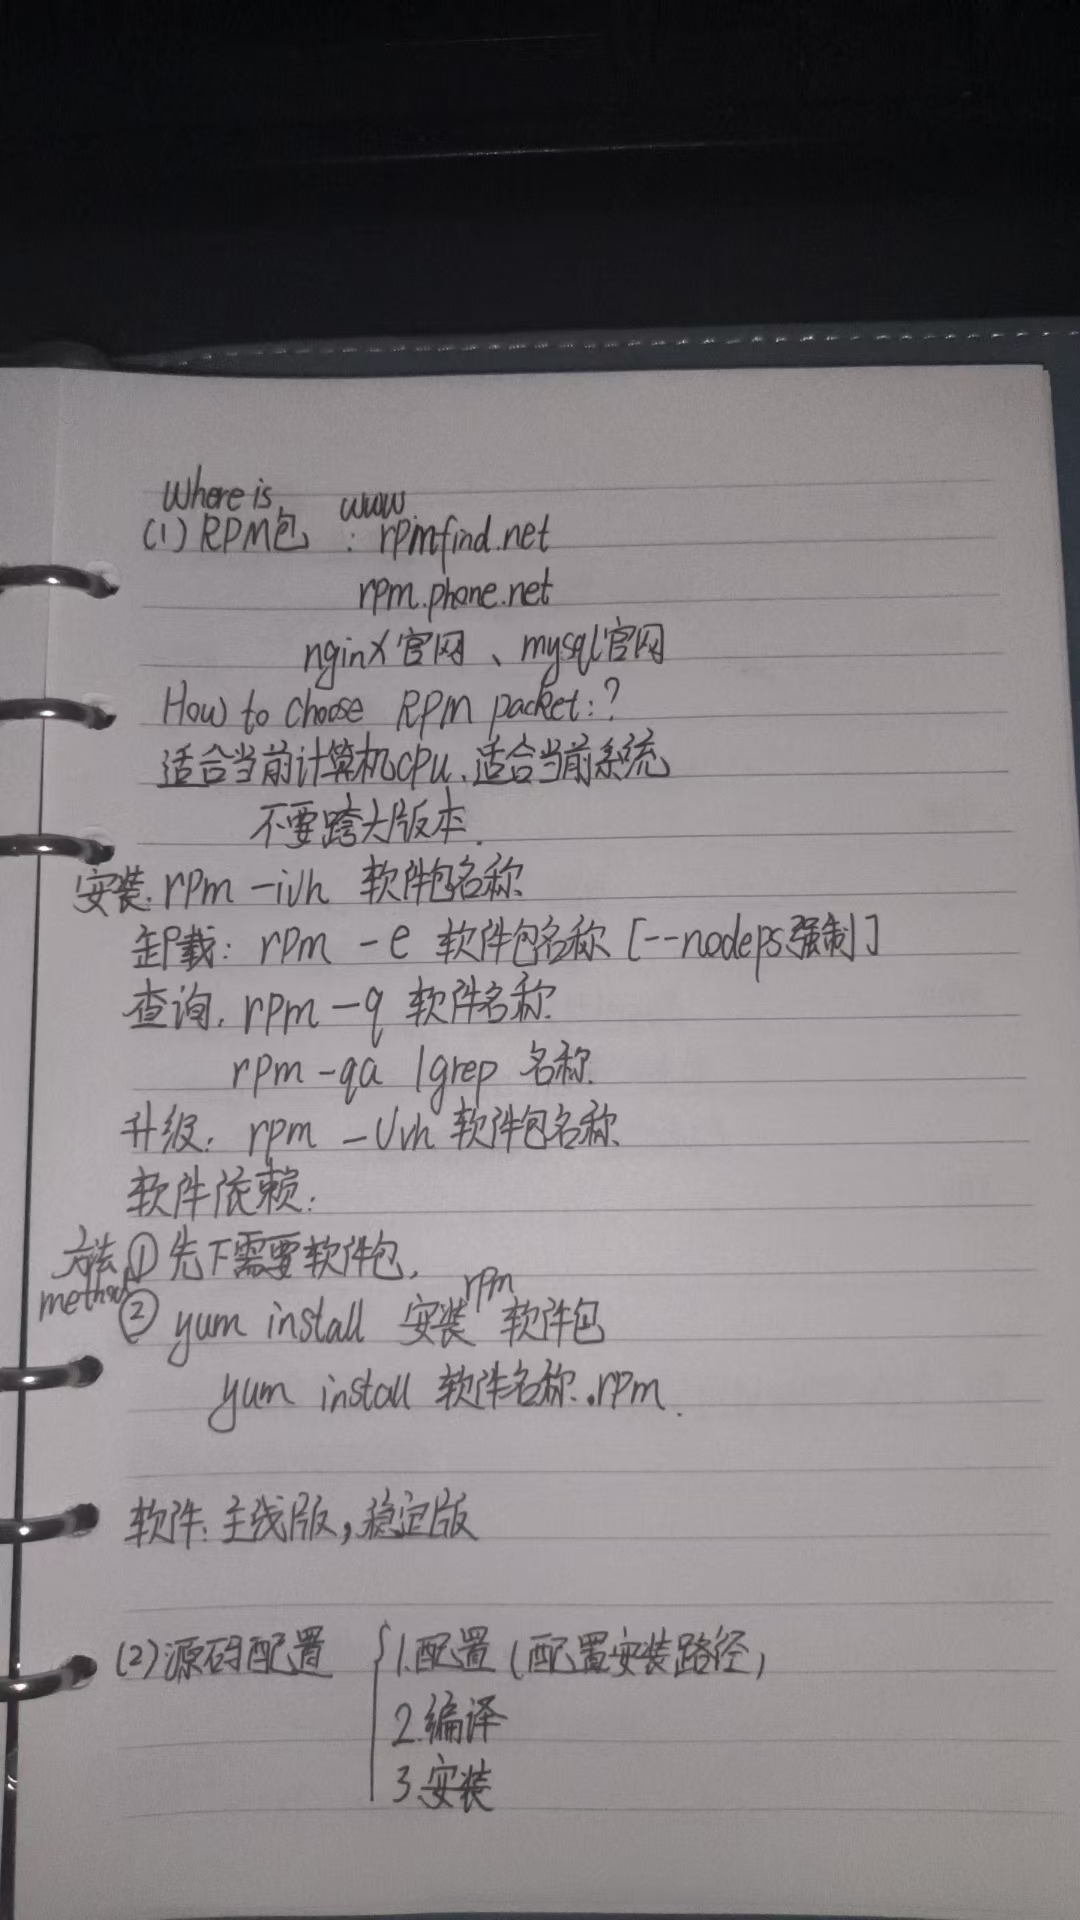 Where is
(1) RPM包 : www.rpmfind.net
rpm.phone.net
nginx官网、mysql官网
How to choose RPM packet:?
适合当前计算机cpu、适合当前系统
不要跨大版本.
安装. rpm -ivh 软件包名称
卸载: rpm -e 软件包名称 [--nodeps强制]
查询. rpm -q 软件名称
rpm -qa |grep 名称
升级: rpm -Uvh 软件包名称
软件依赖:
方法 ① 先下需要软件包,
method ② yum install 安装rpm软件包
yum install 软件名称.rpm.
软件: 主线版,稳定版
(2)源码配置 1.配置(配置安装路径)
2.编译
3.安装